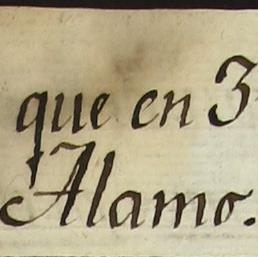 que en 3
Alamo.